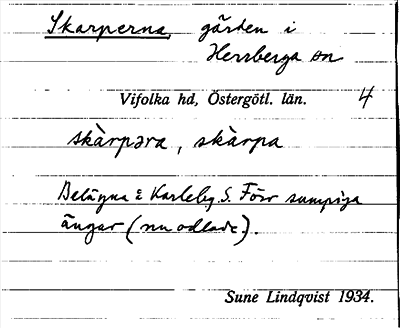 Skarperna, gården i
Herrberga sn
Vifolka hd, Östergötl. län. 4
skàrpəra, skàrpa
Belägna i Karleby S. Förr sumpiga
ängar (nu odlade).
Sune Lindqvist 1934.